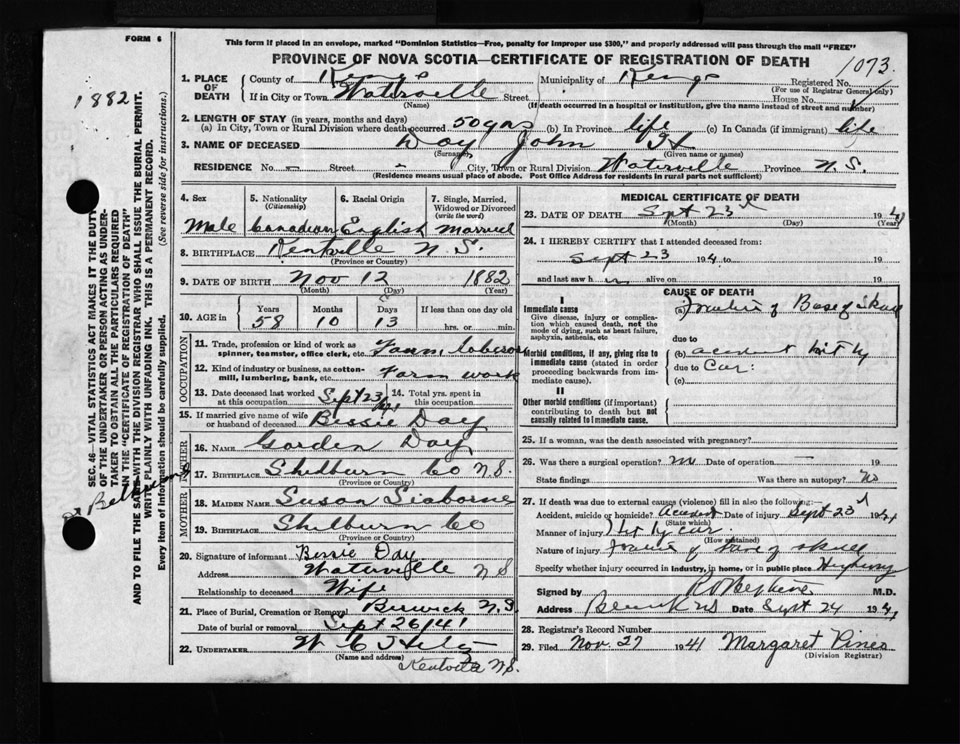 FORM 6
This form if placed in an envelope, marked "Dominion Statistics—Free, penalty for improper use $300," and properly addressed will pass through the mail "FREE"
PROVINCE OF NOVA SCOTIA—CERTIFICATE OF REGISTRATION OF DEATH
1073
1882
SEC. 46—VITAL STATISTICS ACT MAKES IT THE DUTY
OF THE UNDERTAKER OR PERSON ACTING AS UNDER-
TAKER TO OBTAIN ALL THE PARTICULARS REQUIRED
IN THE "CERTIFICATE OF REGISTRATION OF DEATH"
AND TO FILE THE SAME WITH THE DIVISION REGISTRAR WHO SHALL ISSUE THE BURIAL PERMIT.
WRITE PLAINLY WITH UNFADING INK. THIS IS A PERMANENT RECORD.
Every item of information should be carefully supplied. (See reverse side for instructions.)
1. PLACE OF DEATH County of Kings Municipality of Kings Registered No.
(For use of Registrar General only)
If in City or Town Waterville Street House No.
(Name) (If death occurred in a hospital or institution, give the name instead of street and number)
2. LENGTH OF STAY (in years, months and days)
(a) In City, Town or Rural Division where death occurred 50 yrs (b) In Province life (c) In Canada (if immigrant) life
3. NAME OF DECEASED Day John
(Surname) (Given name or names)
RESIDENCE No. — Street — City, Town or Rural Division Waterville Province N.S.
(Residence means usual place of abode. Post Office Address for residents in rural parts not sufficient)
4. Sex 5. Nationality (Citizenship) 6. Racial Origin 7. Single, Married, Widowed or Divorced (write the word)
Male Canadian English Married
8. BIRTHPLACE Kentville N.S.
(Province or Country)
9. DATE OF BIRTH Nov 12 1882
(Month) (Day) (Year)
10. AGE in Years Months Days If less than one day old
58 10 13 hrs. or min.
OCCUPATION
11. Trade, profession or kind of work as spinner, teamster, office clerk, etc. Farm laborer
12. Kind of industry or business, as cotton-mill, lumbering, bank, etc. Farm work
13. Date deceased last worked at this occupation Sept 23/41 14. Total yrs. spent in this occupation
15. If married give name of wife or husband of deceased Bessie Day
FATHER
16. NAME Gorden Day
17. BIRTHPLACE Shelburn Co N.S.
(Province or Country)
MOTHER
18. MAIDEN NAME Susan Seaborne
19. BIRTHPLACE Shelburn Co
(Province or Country)
20. Signature of informant Bessie Day
Address Waterville N S
Relationship to deceased Wife
21. Place of Burial, Cremation or Removal Berwick N.S
Date of burial or removal Sept 26/41
22. UNDERTAKER W C
(Name and address) Kentville N.S.
MEDICAL CERTIFICATE OF DEATH
23. DATE OF DEATH Spt 23rd 1941
(Month) (Day) (Year)
24. I HEREBY CERTIFY that I attended deceased from:
Sept 23 1941 to 19
and last saw h im alive on 19
CAUSE OF DEATH
I
Immediate cause
Give disease, injury or complication which caused death, not the mode of dying, such as heart failure, asphyxia, asthenia, etc
(a) Fracture of Base of Skull
due to
Morbid conditions, if any, giving rise to immediate cause (stated in order proceeding backwards from immediate cause).
(b) accident hit by
due to car.
(c)
II
Other morbid conditions (if important) contributing to death but not causally related to immediate cause.
25. If a woman, was the death associated with pregnancy?
26. Was there a surgical operation? no Date of operation — 19
State findings Was there an autopsy? No
27. If death was due to external causes (violence) fill in also the following:—
Accident, suicide or homicide? Accident Date of injury Sept 23rd 1941
(State which)
Manner of injury Hit by car
(How sustained)
Nature of injury Fracture of base of skull
Specify whether injury occurred in industry, in home, or in public place Highway
Signed by M.D.
Address Berwick NS Date Sept 24 1941
28. Registrar's Record Number
29. Filed Nov. 27 1941 Margaret Pines
(Division Registrar)